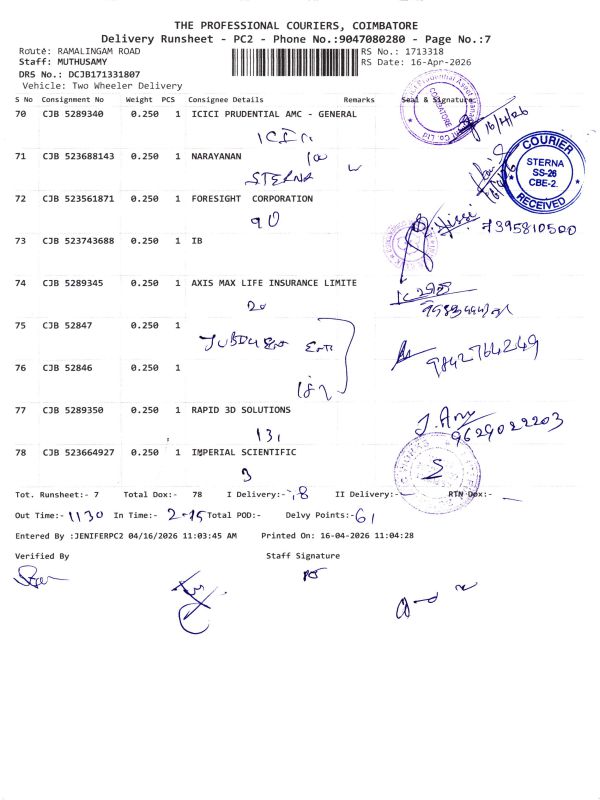 THE PROFESSIONAL COURIERS, COIMBATORE
Delivery Runsheet - PC2 - Phone No.:9047080280 - Page No.:7
Route: RAMALINGAM ROAD
RS No.: 1713318
Staff: MUTHUSAMY
RS Date: 16-Apr-2026
DRS No.: DCJB171331807
Vehicle: Two Wheeler Delivery
S No Consignment No Weight PCS Consignee Details Remarks Seal & Signature
70 CJB 5289340 0.250 1 ICICI PRUDENTIAL AMC - GENERAL
16/4/26
71 CJB 523688143 0.250 1 NARAYANAN
STERNA
COURIER
STERNA
SS-26
CBE-2.
RECEIVED
72 CJB 523561871 0.250 1 FORESIGHT CORPORATION
90
7395810500
73 CJB 523743688 0.250 1 IB
74 CJB 5289345 0.250 1 AXIS MAX LIFE INSURANCE LIMITE
75 CJB 52847 0.250 1
9842764249
76 CJB 52846 0.250 1
77 CJB 5289350 0.250 1 RAPID 3D SOLUTIONS
131
9629022203
78 CJB 523664927 0.250 1 IMPERIAL SCIENTIFIC
3
Tot. Runsheet:- 7 Total Dox:- 78 I Delivery:- II Delivery:- RTN Dox:-
Out Time:- 1130 In Time:- 2-15 Total POD:- Delvy Points:- 61
Entered By :JENIFERPC2 04/16/2026 11:03:45 AM Printed On: 16-04-2026 11:04:28
Verified By Staff Signature